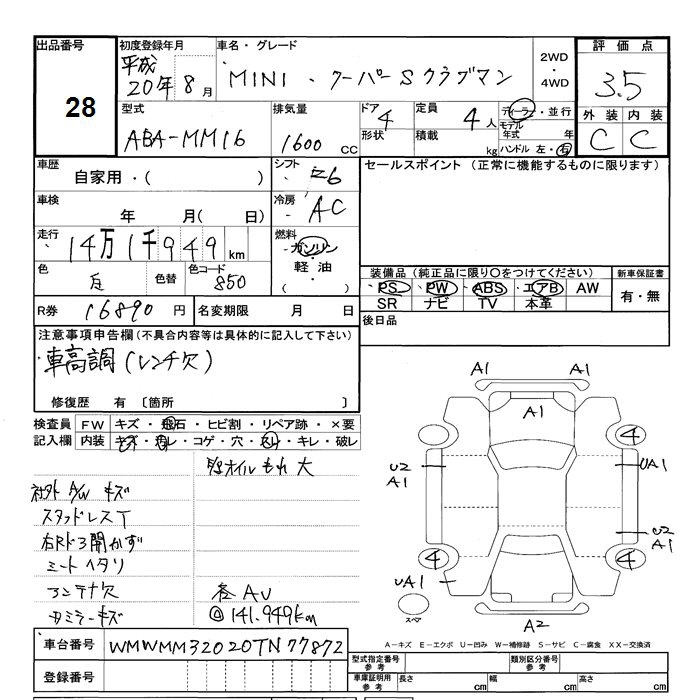 出品番号
28
初度登録年月
平成
20年8月
車名・グレード
MINI・クーパーSクラブマン
2WD
・
4WD
評価点
3.5
外装 内装
C C
型式
ABA-MM16
排気量
1600 CC
ドア 4
形状
定員 4人
積載 kg
ディーラー・並行
モデル年式 年
ハンドル 左・右
車歴
自家用・( )
シフト
車検
年 月( 日)
冷房
AC
走行
14万1千949km
燃料
ガソリン
・
軽油
( )
色 色替 色コード 850
セールスポイント (正常に機能するものに限ります)
装備品 (純正品に限り○をつけてください)
・PS ・PW ABS ・エアB AW
SR ナビ TV 本革
新車保証書
有・無
R券 16890円
名変期限 月 日
後日品
注意事項申告欄(不具合内容等は具体的に記入して下さい)
・車高調(レンチ欠)
修復歴 有 〔箇所 〕
検査員記入欄
FW キズ・飛石・ヒビ割・リペア跡・×要
内装 キズ・汚レ・コゲ・穴・スレ・キレ・破レ
オイルもれ 大
社外A/Wキズ
スタッドレスT
右Rドア開かず
シートヘタリ
アンテナ欠
ミラーキズ
AV
141.949km
A1 A1
A1
4 4
U2 A1
UA1
U2 A1
4 4
UA1
スペア
A2
A－キズ E－エクボ U－凹み W－補修跡 S－サビ C－腐食 XX－交換済
車台番号 WMWMM32020TN77872
登録番号
型式指定番号 参考
類別区分番号 参考
車庫証明用 参考
長さ cm 幅 cm 高さ cm